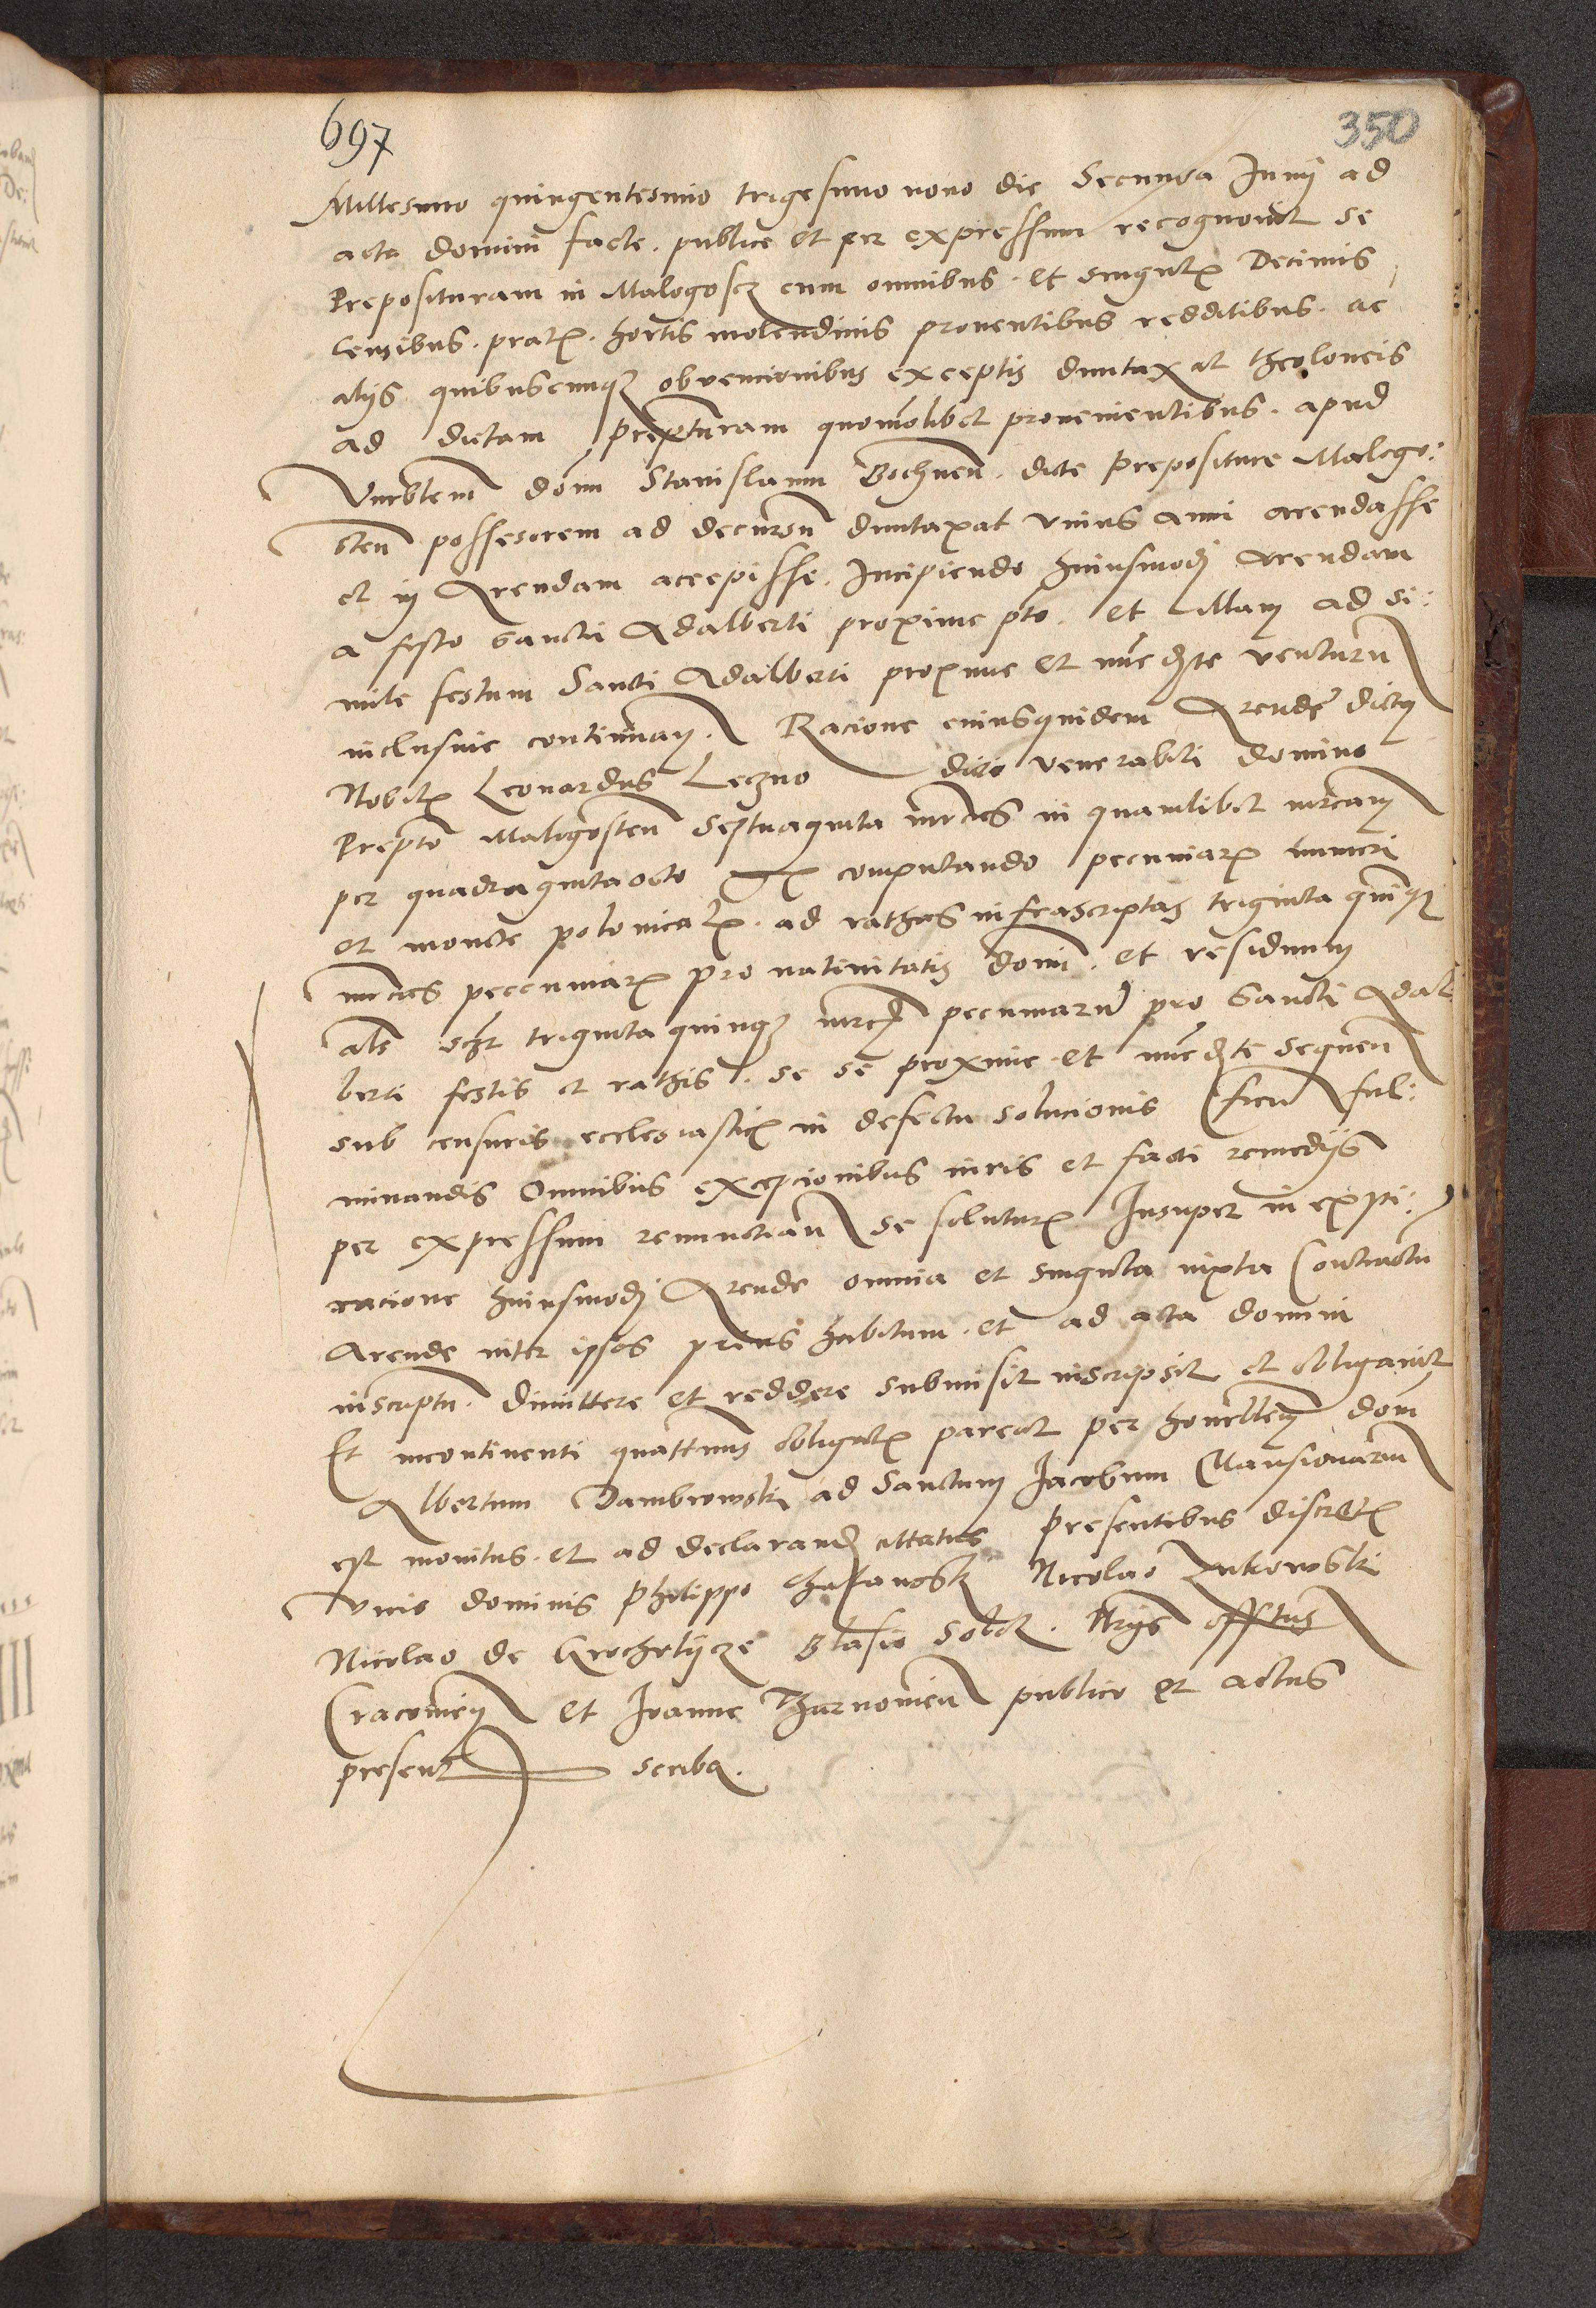 697
350
Millesimo quingentesimo trigesimo nono die Secunda Junij ad
acta domini facte. publice et per expressum recognovit se
Preposituram in Malogoscz cum omnibus. et singulis Decimis
Censibus. pratis. hortis molendinis proventibus redditibus. ac
alijs quibuscunque obvencionibus exceptis duntaxat theoloneis
ad dictam Preptturam quomolibet provenientibus. apud
Vnrblem dom Stanislaum Bochnen. dicte prepositure Malogo:
sten possesorem ad decursum duntaxat vnius anni arendasse
et in Arendam accepisse. Incipiendo huiusmodi Arendam
a festo sancti Adalberti proxime pto. et illam ad si:
mile festum Sancti Adalberti proxime et immediate venturum
inclusive continuan. Racione cuiusquidem Arende dictus
Nobilis Leonardus Leczno dicto venerabili domino
Prepto Malogosten Septuaginta mrcas in quamlibet mrcam
per quadraginta octo computando pecuniarum numeri
et monete polonicalis. ad rathas infrascriptas triginta quinque
mrcas peccuniarum pro nativitatis domi. et residuum
als triginta quinque mrcas pecuniarum pro Sancti Adal
berti festis et rathis. se se proxime et immediate sequen
sub censuris ecclesiasticis in defectu solucionis ful:
minandis Omnibus excepcionibus iuris et facti remedijs
per expressum renunctian se soluturum Insuper in expi:
racione huiusmodi Arende omnia et singula iuxta Contractum
Arende inter ipsos prius habitum. et ad acta domini
inscriptum. Dimittere et reddere submisit inscripsit et obligavit
Et incontinenti quattenus obligatis pareat per honrblem dom
Albertum Dambrowski ad Sanctum Jacobum Mansionarium
est monitus. et ad declarand cittatus Presentibus discretis
viris dominis Philippo Nicolao Zukowski
Nicolao de Krocheliycze Blasio Sobek. Ntrijs
Cracovien et Joanne Tharnovien publico et actus
presen scriba.